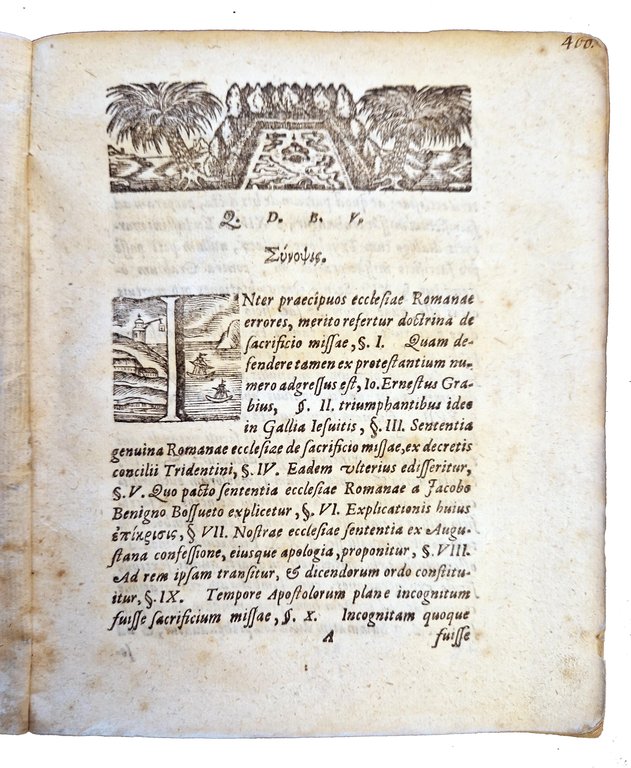 400.
Q. D. B. V.
Σύνοψις.
INter praecipuos ecclesiae Romanae
errores, merito refertur doctrina de
sacrificio missae, §. I. Quam de-
fendere tamen ex protestantium nu-
mero adgressus est, Io. Ernestus Gra-
bius, §. II. triumphantibus ideo
in Gallia Iesuitis, §. III. Sententia
genuina Romanae ecclesiae de sacrificio missae, ex decretis
concilii Tridentini, §. IV. Eadem ulterius edisseritur,
§. V. Quo pacto sententia ecclesiae Romanae a Jacobo
Benigno Bossueto explicetur, §. VI. Explicationis huius
ἐπίκρισις, § VII. Nostrae ecclesiae sententia ex Augu-
stana confessione, eiusque apologia, proponitur, §. VIII.
Ad rem ipsam transitur, & dicendorum ordo constitu-
itur, §. IX. Tempore Apostolorum plane incognitum
fuisse sacrificium missae, §. X. Incognitam quoque
A fuisse